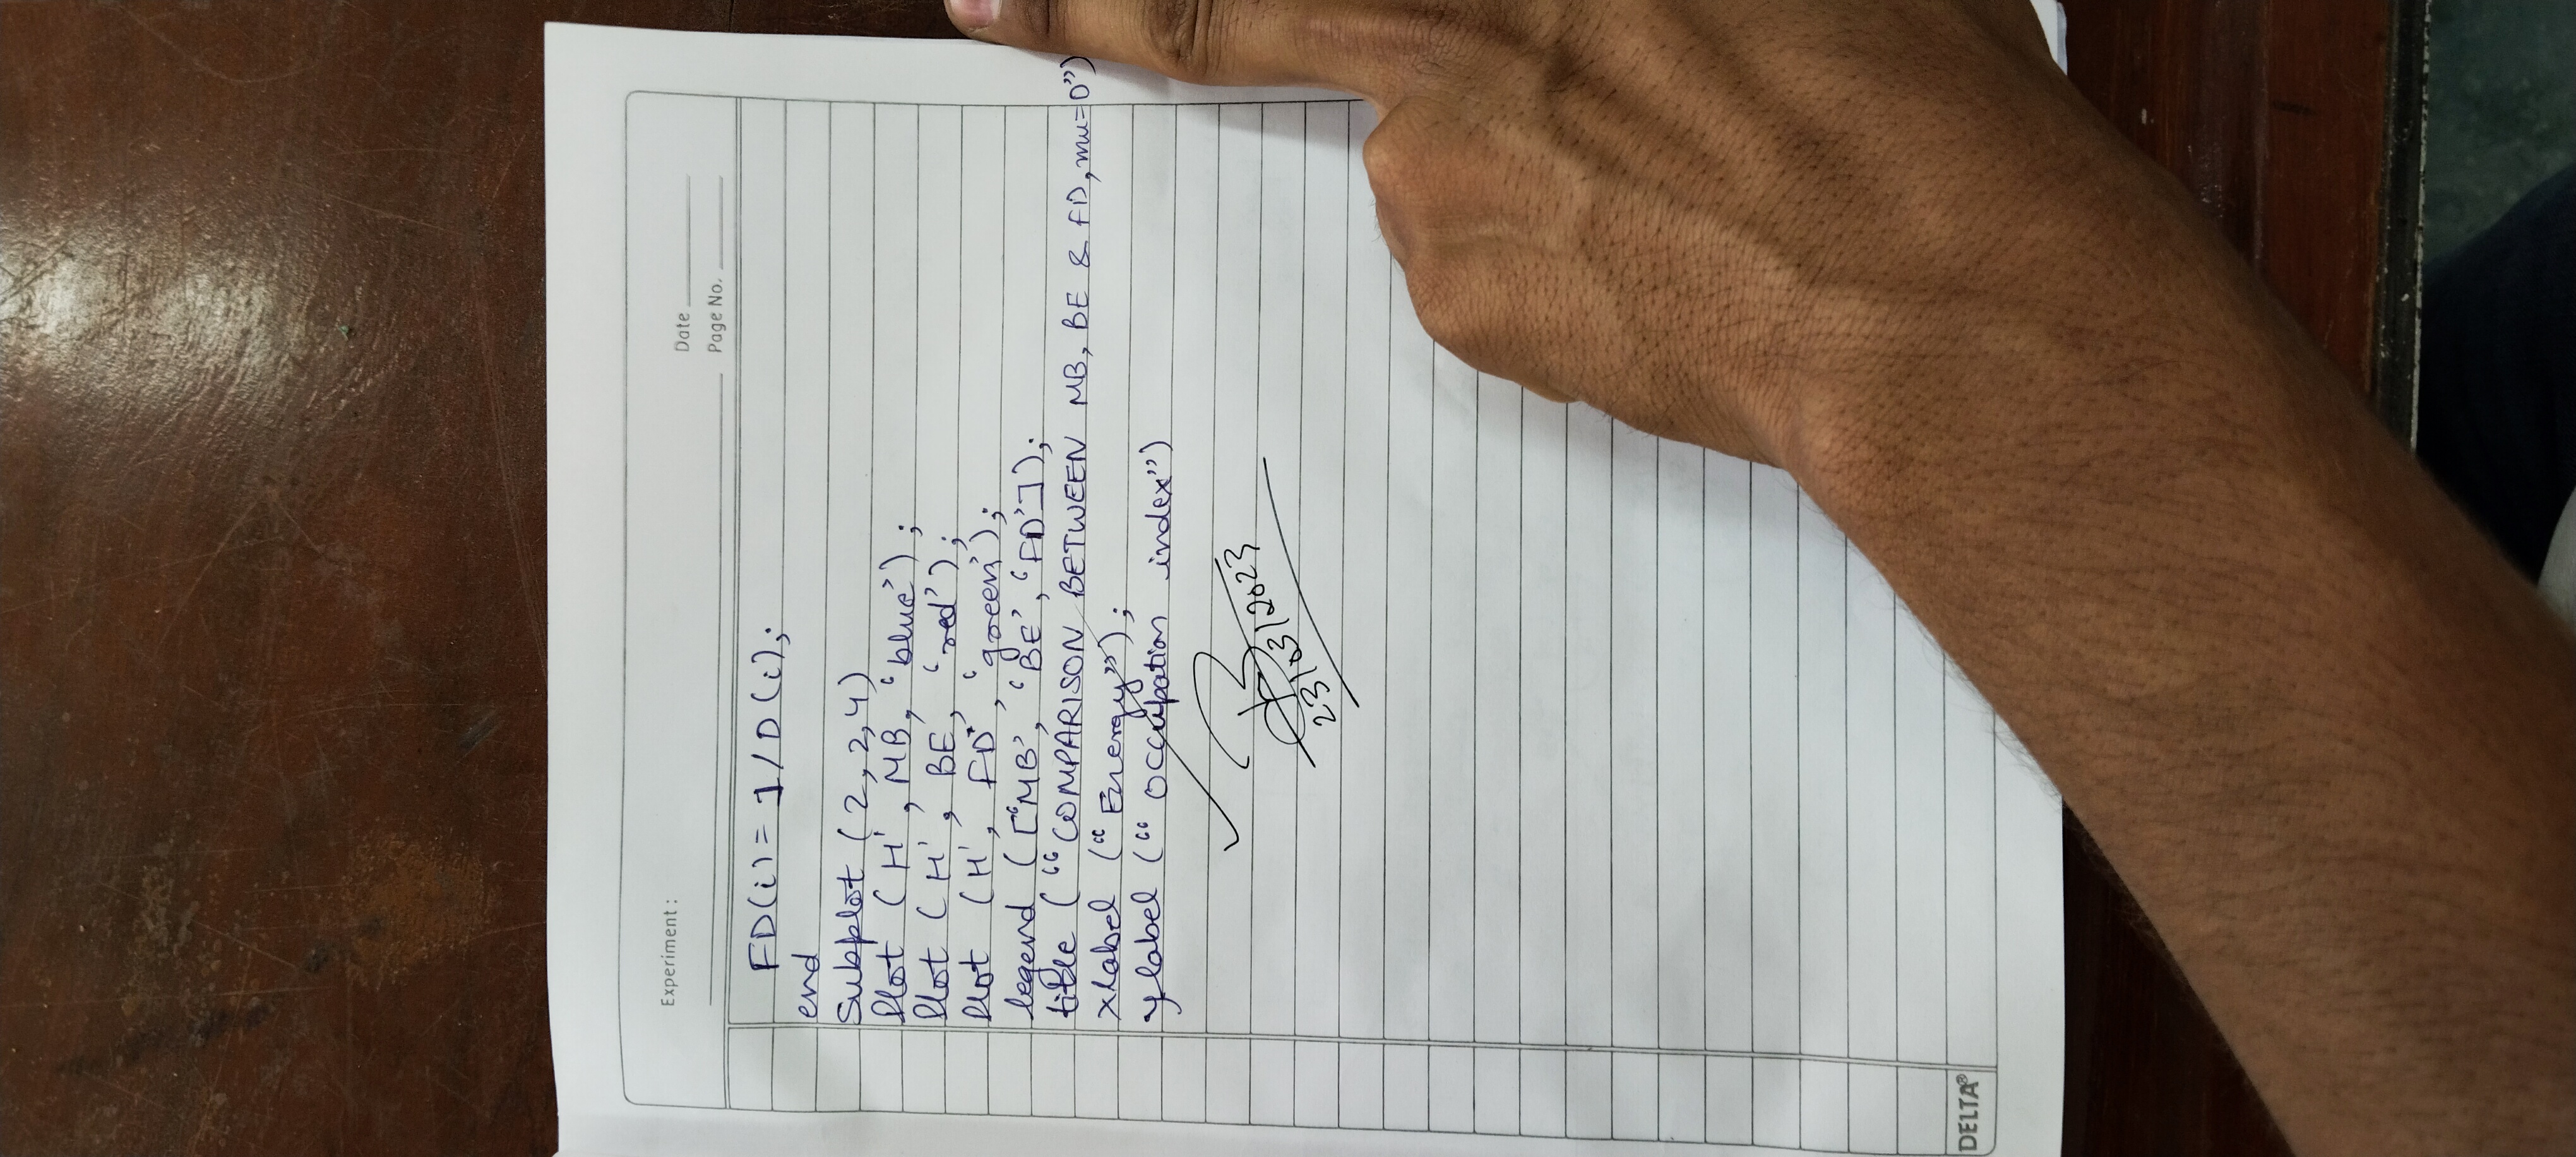 Experiment :
Date
Page No.
FD(i) = 1/D(i);
end
Subplot (2,2,4)
Plot (H', MB, 'blue');
Plot (H', BE, 'red');
Plot (H', FD, 'green');
legend (['MB', 'BE', 'FD']);
title ("COMPARISON BETWEEN MB, BE & FD, mu=0")
xlabel ("Energy");
ylabel ("Occupation index")
23/03/2023
DELTA®